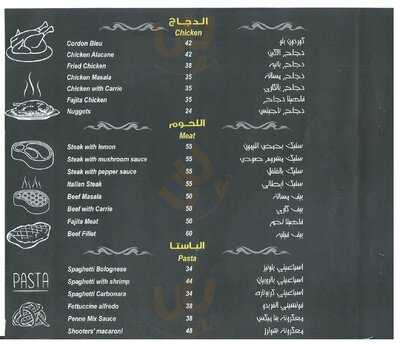 الدجاج
Chicken
Cordon Bleu 42 كوردون بلو
Chicken Alacane 42
Fried Chicken 38 دجاج بانيه
Chicken Masala 35 دجاج مسالة
Chicken with Carrie 35 دجاج بالكاري
Fajita Chicken 35 فاهيتا دجاج
Nuggets 24
اللحوم
Meat
Steak with lemon 55 ستيك بحمض الليمون
Steak with mushroom sauce 55
Steak with pepper sauce 55 ستيك بالفلفل
Italian Steak 55 ستيك ايطالي
Beef Masala 50 بيف مسالة
Beef with Carrie 50 بيف كاري
Fajita Meat 50 فاهيتا لحم
Beef Fillet 60 بيف فيليه
الباستا
Pasta
PASTA
Spaghetti Bolognese 34
Spaghetti with shrimp 44
Spaghetti Carbonara 34
Fettuccine alfredo 38
Penne Mix Sauce 38
Shooters' macaroni 48